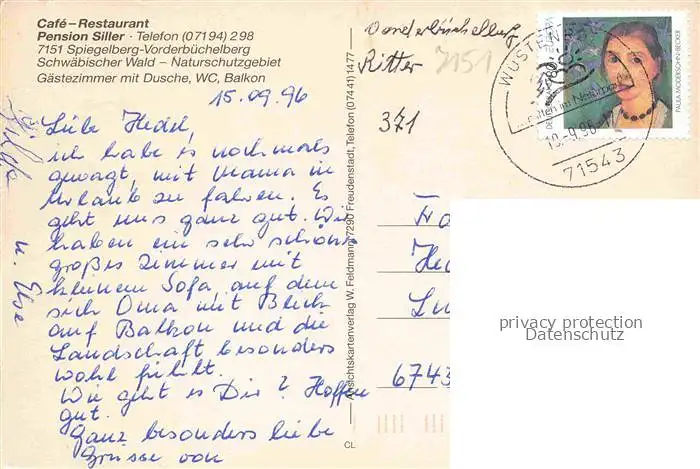 Café–Restaurant
Pension Siller · Telefon (07194) 298
7151 Spiegelberg-Vorderbüchelberg
Schwäbischer Wald – Naturschutzgebiet
Gästezimmer mit Dusche, WC, Balkon
15.09.96
Liebe Hedel,
ich habe es nochmals
gewagt, mit Mama in
Urlaub zu fahren. Es
geht uns ganz gut. Wir
haben ein sehr schönes
großes Zimmer mit
kleinem Sofa, auf dem
sich Oma mit Blick
auf Balkon und die
Landschaft besonders
wohl fühlt.
Wie geht es Dir? Hoffen
gut.
Ganz besonders liebe
Grüsse von
u. Else
Ansichtskartenverlag W. Feldmann, 7290 Freudenstadt, Telefon (07441) 1477
CL
Ritter
7151
371
WÜSTEN
71543
PAULA MODERSOHN-BECKER
6743
privacy protection
Datenschutz